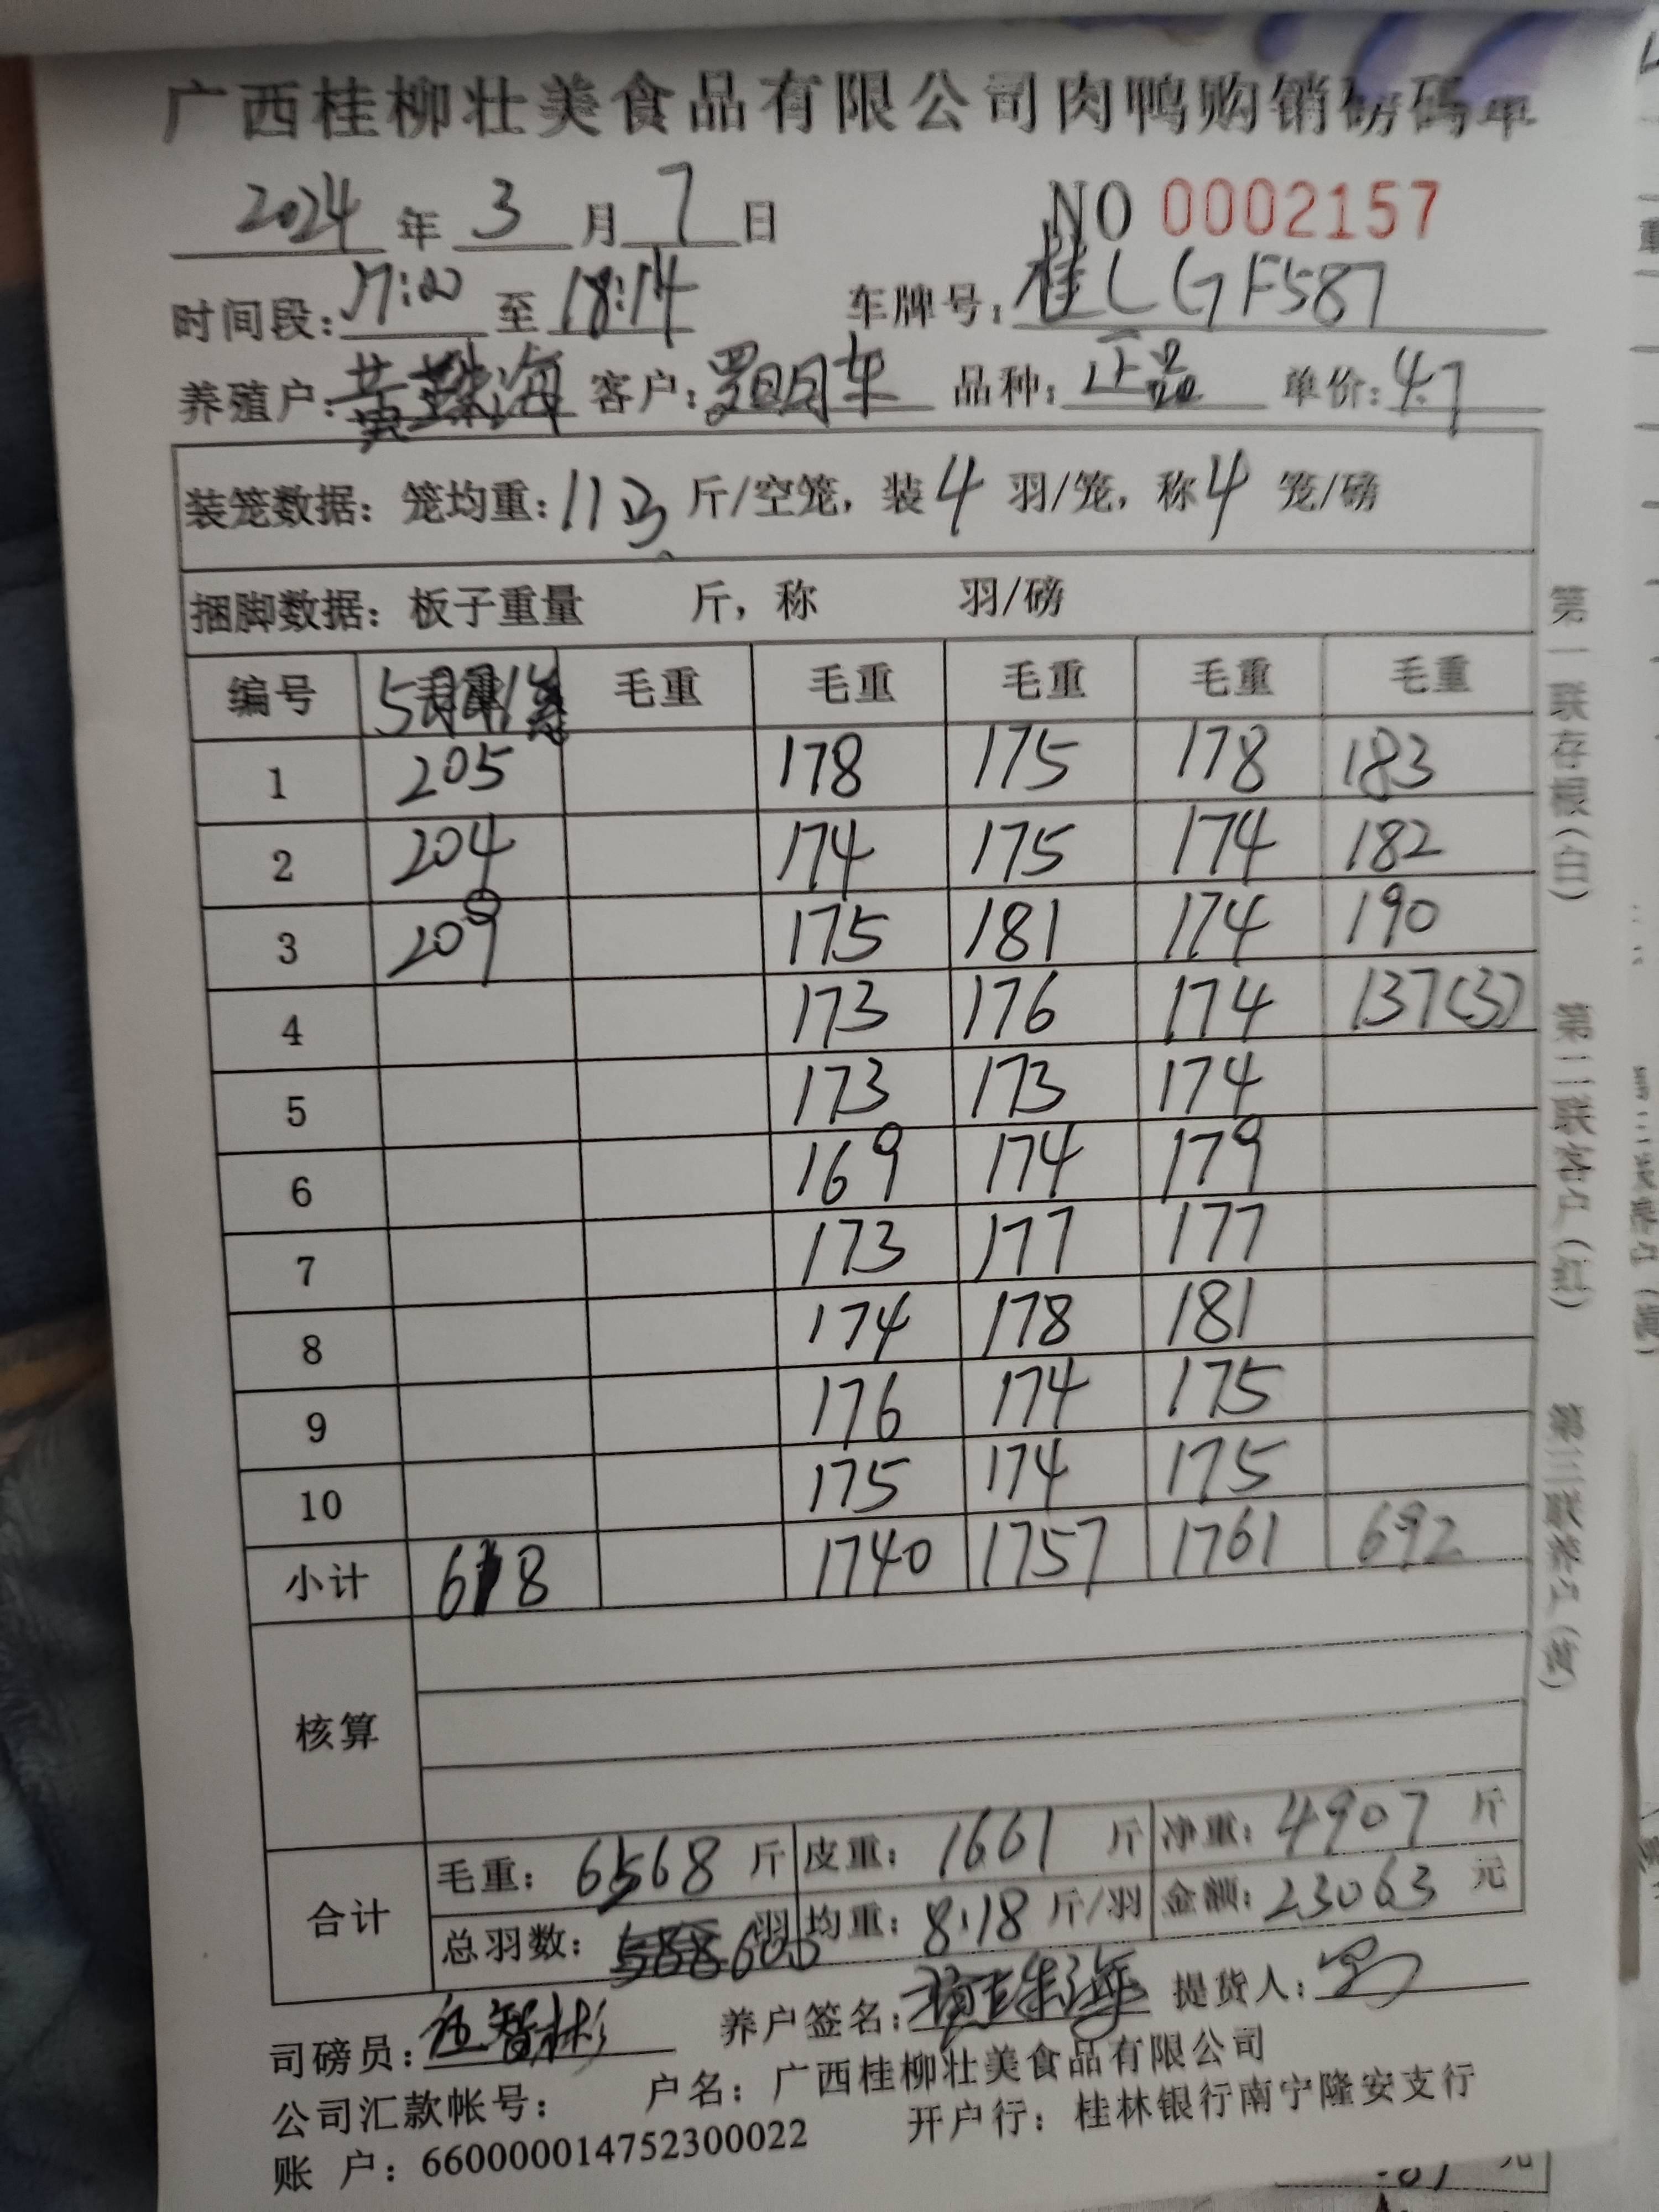 广西桂柳壮美食品有限公司肉鸭购销磅码单
2024 年 3 月 7 日 NO 0002157
时间段: 17:00 至 18:14 车牌号: 桂LGF587
养殖户: 黄珠海 客户: 罗明东 品种: 正品 单价: 4.7
装笼数据: 笼均重: 11.3 斤/空笼, 装 4 羽/笼, 称 4 笼/磅
捆脚数据: 板子重量 斤, 称 羽/磅
编号 毛重 毛重 毛重 毛重 毛重
1 205 178 175 178 183
2 204 174 175 174 182
3 209 175 181 174 190
4 173 176 174 137(3)
5 173 173 174
6 169 174 179
7 173 177 177
8 174 178 181
9 176 174 175
10 175 174 175
小计 618 1740 1757 1761 692
核算
合计
毛重: 6568 斤 皮重: 1661 斤 净重: 4907 斤
总羽数: 600 羽 均重: 8.18 斤/羽 金额: 23063 元
司磅员: 养户签名: 黄珠海 提货人:
公司汇款帐号: 户名: 广西桂柳壮美食品有限公司
账 户: 660000014752300022 开户行: 桂林银行南宁隆安支行
第一联存根(白) 第二联客户(红) 第三联养户